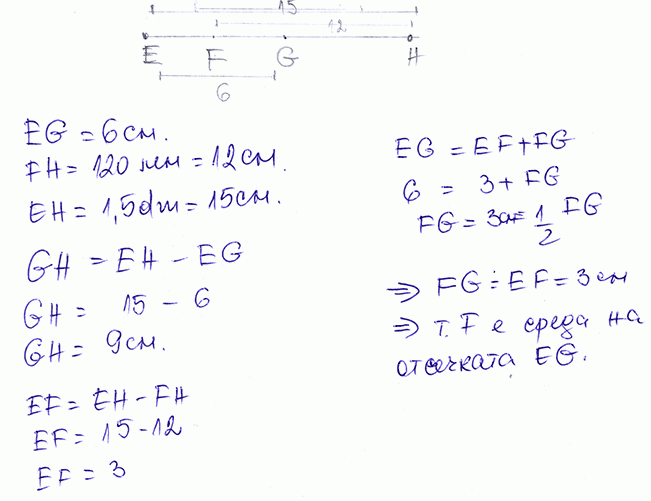 15
12
E F G H
6
EG = 6 см.
FH = 120 мм = 12 см.
EH = 1,5 dm = 15 см.
GH = EH - EG
GH = 15 - 6
GH = 9 см.
EF = EH - FH
EF = 15 - 12
EF = 3
EG = EF + FG
6 = 3 + FG
FG = 3 см = 1/2 FG
⇒ FG = EF = 3 см
⇒ т. F е среда на
отсечката EG.